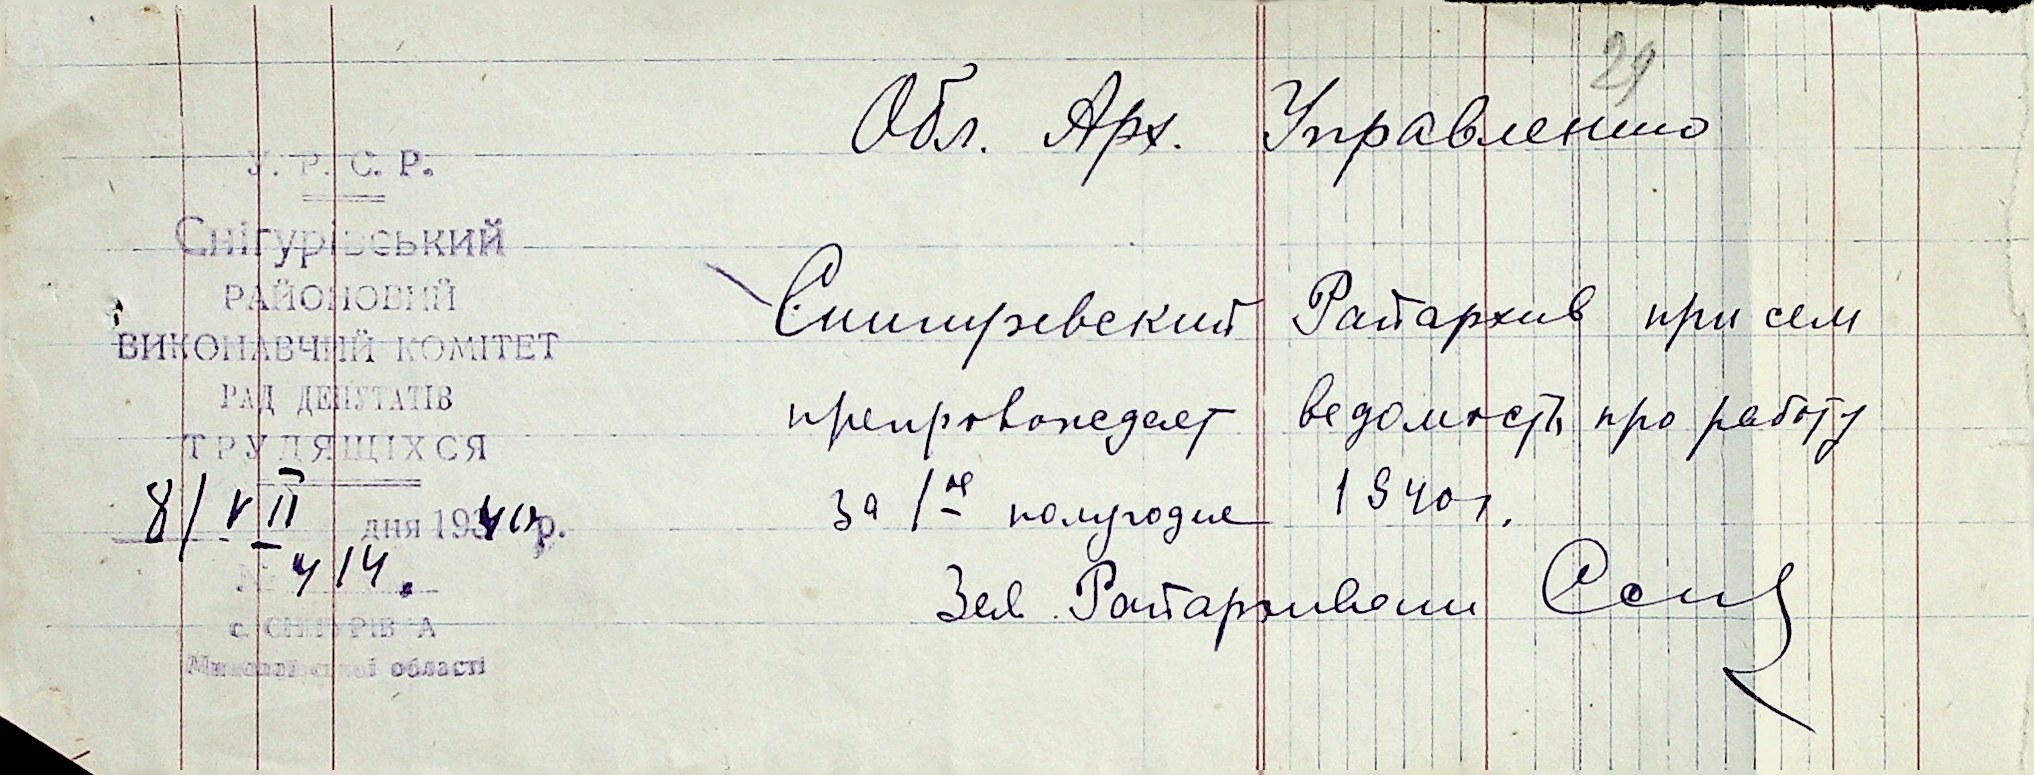 29
Обл. Арх. Управлению
У. Р. С. Р.
Снігурівський
РАЙОНОВИЙ
ВИКОНАВЧИЙ КОМІТЕТ
РАД ДЕПУТАТІВ
ТРУДЯЩІХСЯ
8/VII дня 1940 р.
№ 414.
с. СНІГУРІВКА
Миколаївської області
Снигуревский Райархив при сем
препровождает ведомость про работу
за 1ое полугодие 1940 г.
Зав. Райархивом